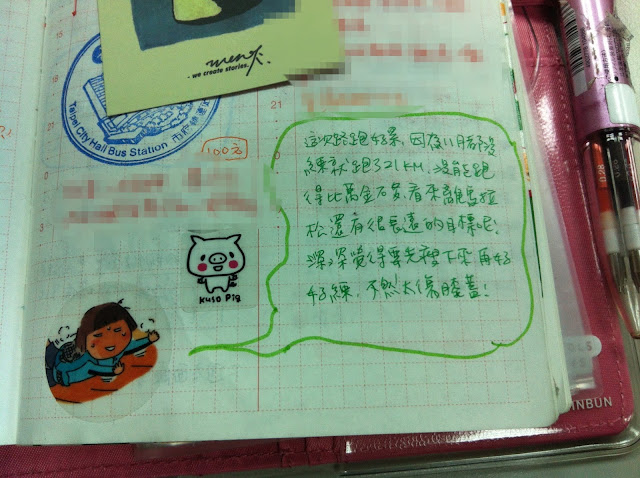 meng
- we create stories.
15
Taipei City Hall Bus Station 市府轉運站
100元
21
這次路跑好累, 因為11月都沒
練就跑了21KM, 沒能跑
得比萬金石 看來離馬拉
松還有很長遠的目標呢!
深深覺得要先瘦下來再好
好練, 不然太傷膝蓋!
Kuso Pig
INBUN